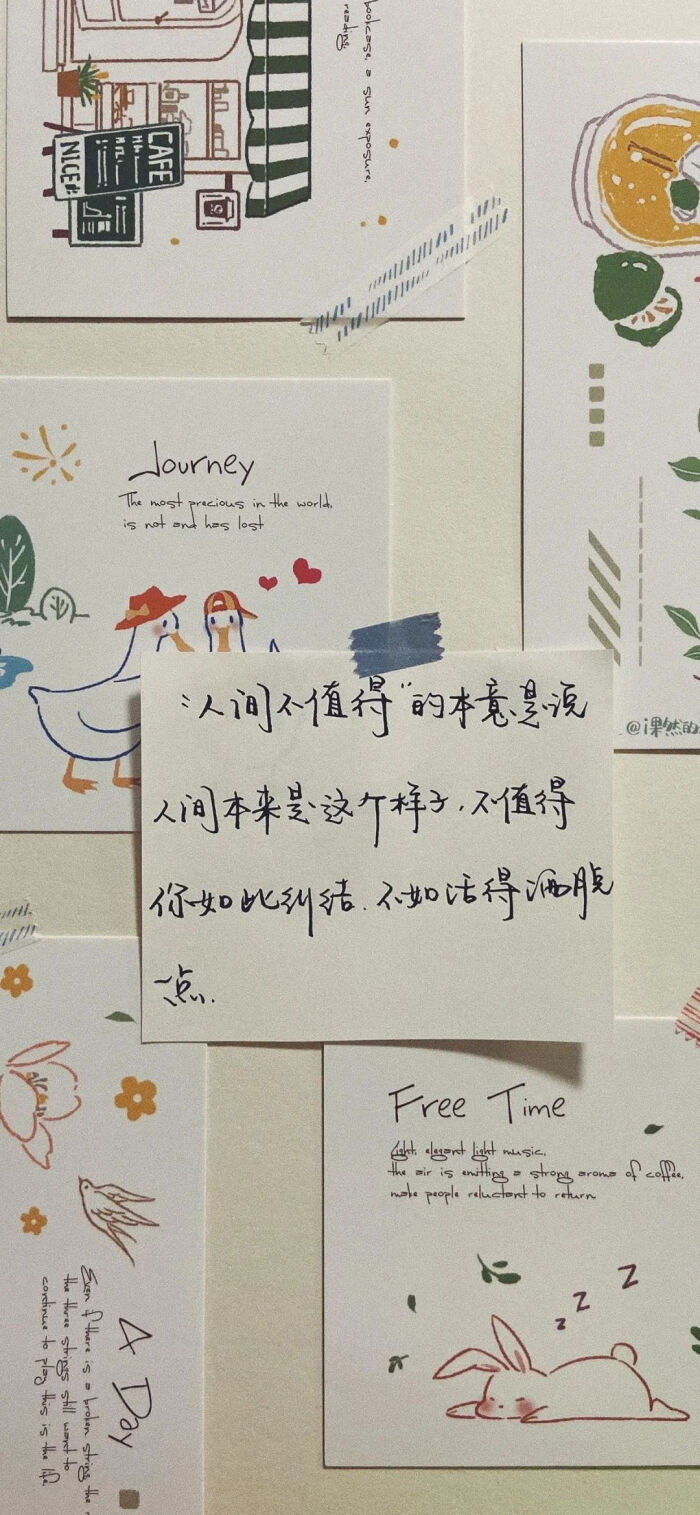 bookcase, a sun exposure,
reading.
CAFE
NICE
Journey
The most precious in the world,
is not and has lost
"人间不值得"的本意是说
人间本来是这个样子,不值得
你如此纠结.不如活得洒脱
一点.
@i果然的
Free Time
Light, elegant light music,
the air is emitting a strong aroma of coffee,
make people reluctant to return
z z z
A Day
Even if there is a broken string the
the three strings still want to
continue to play this is the life.